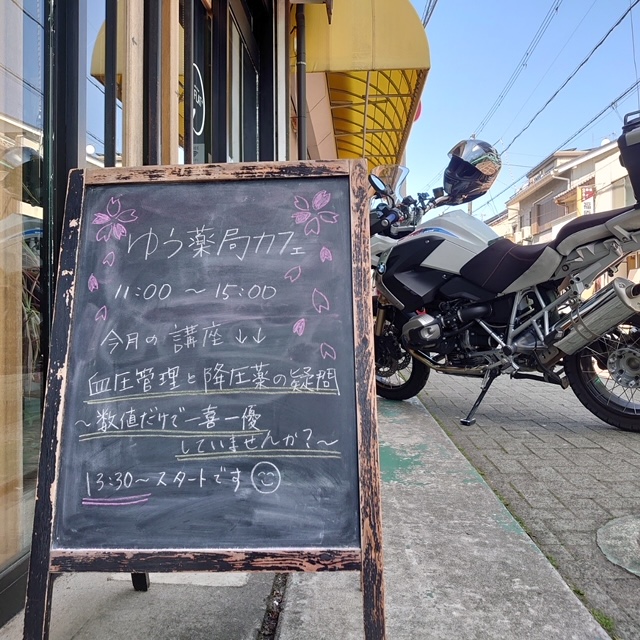 ゆう薬局カフェ
11:00 ～ 15:00
今月の講座↓↓
血圧管理と降圧薬の疑問
～数値だけで一喜一優
していませんか？～
13:30～スタートです☺